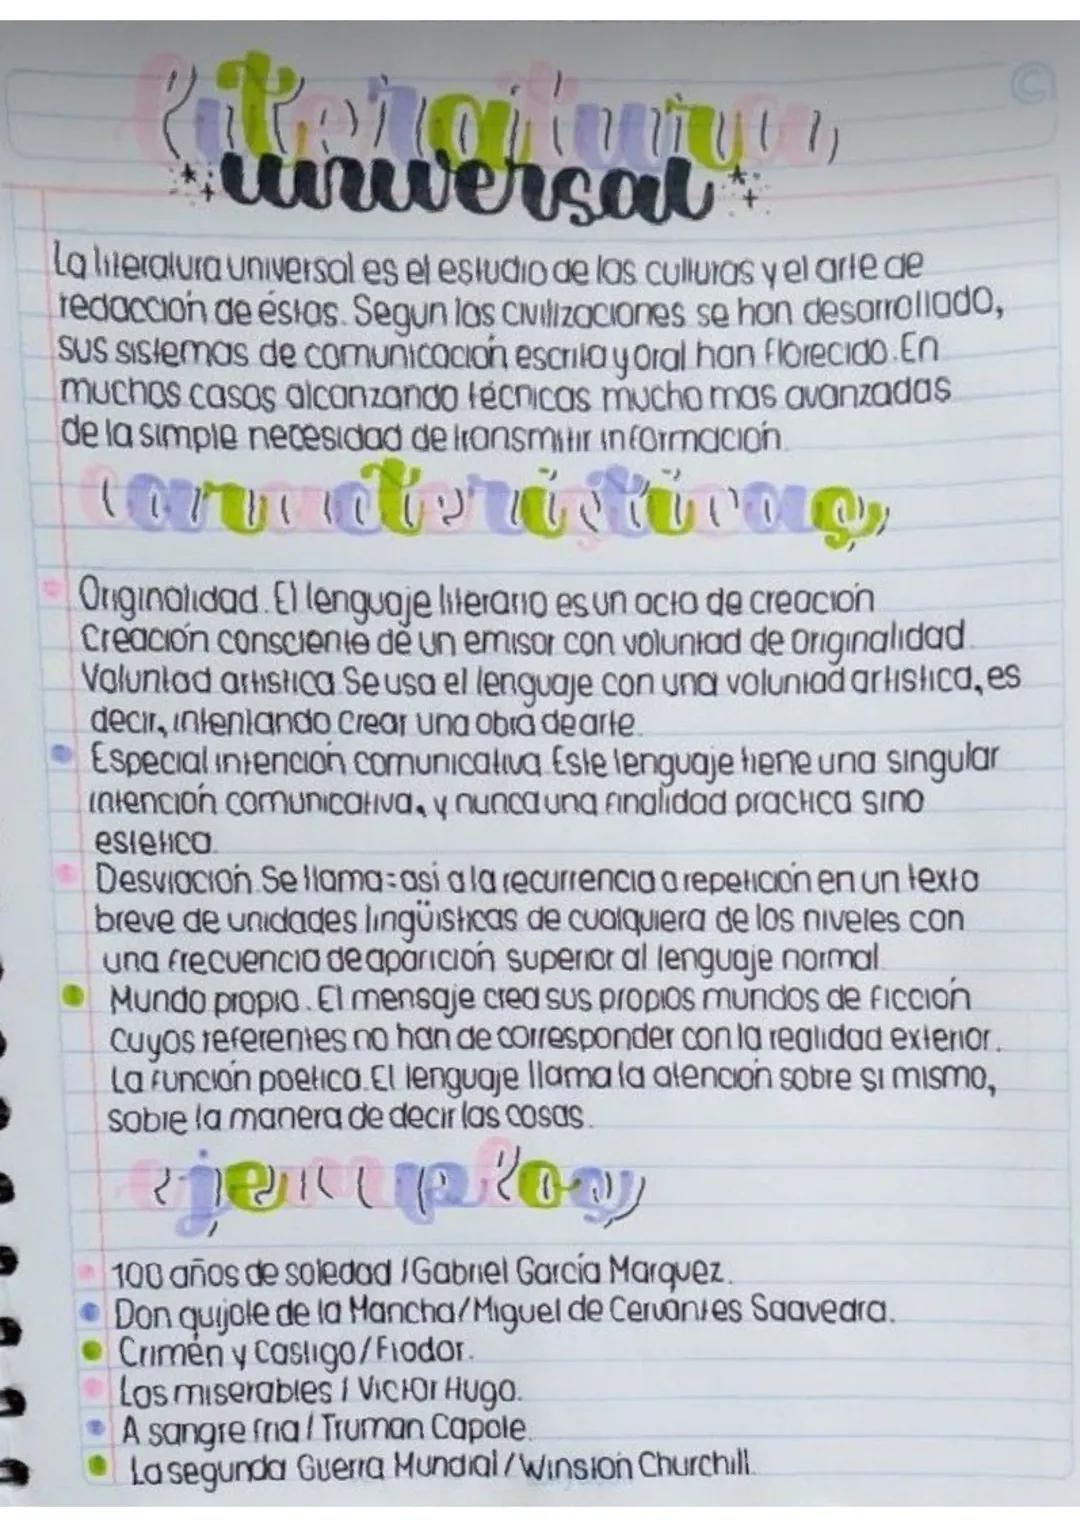 Literatura
universal
La literatura universal es el estudio de las culturas y el arte de
redacción de éstas. Segun las civilizaciones se han desarrollado,
sus sistemas de comunicación escrita y oral han florecido. En
muchos casos alcanzando técnicas mucho mas avanzadas
de la simple necesidad de transmitir información.
Características
Originalidad. El lenguaje literario es un acto de creación
Creación consciente de un emisor con voluntad de originalidad.
Voluntad artistica. Se usa el lenguaje con una voluntad artistica, es
decir, intentando crear una obra de arte.
Especial intención comunicativa. Este lenguaje tiene una singular
intención comunicativa, y nunca una finalidad practica sino
estetica.
Desviación. Se llama asi a la recurrencia o repetición en un texto
breve de unidades lingüisticas de cualquiera de los niveles con
una frecuencia de aparición superior al lenguaje normal.
Mundo propio. El mensaje crea sus propios mundos de ficción
cuyos referentes no han de corresponder con la realidad exterior.
La función poetica. El lenguaje llama la atención sobre si mismo,
sobre la manera de decir las cosas.
ejemplos
100 años de soledad / Gabriel García Marquez.
Don quijote de la Mancha / Miguel de Cervantes Saavedra.
Crimén y Castigo / Fiador.
Los miserables / Victor Hugo.
A sangre fria / Truman Capote.
La segunda Guerra Mundial / Winston Churchill.